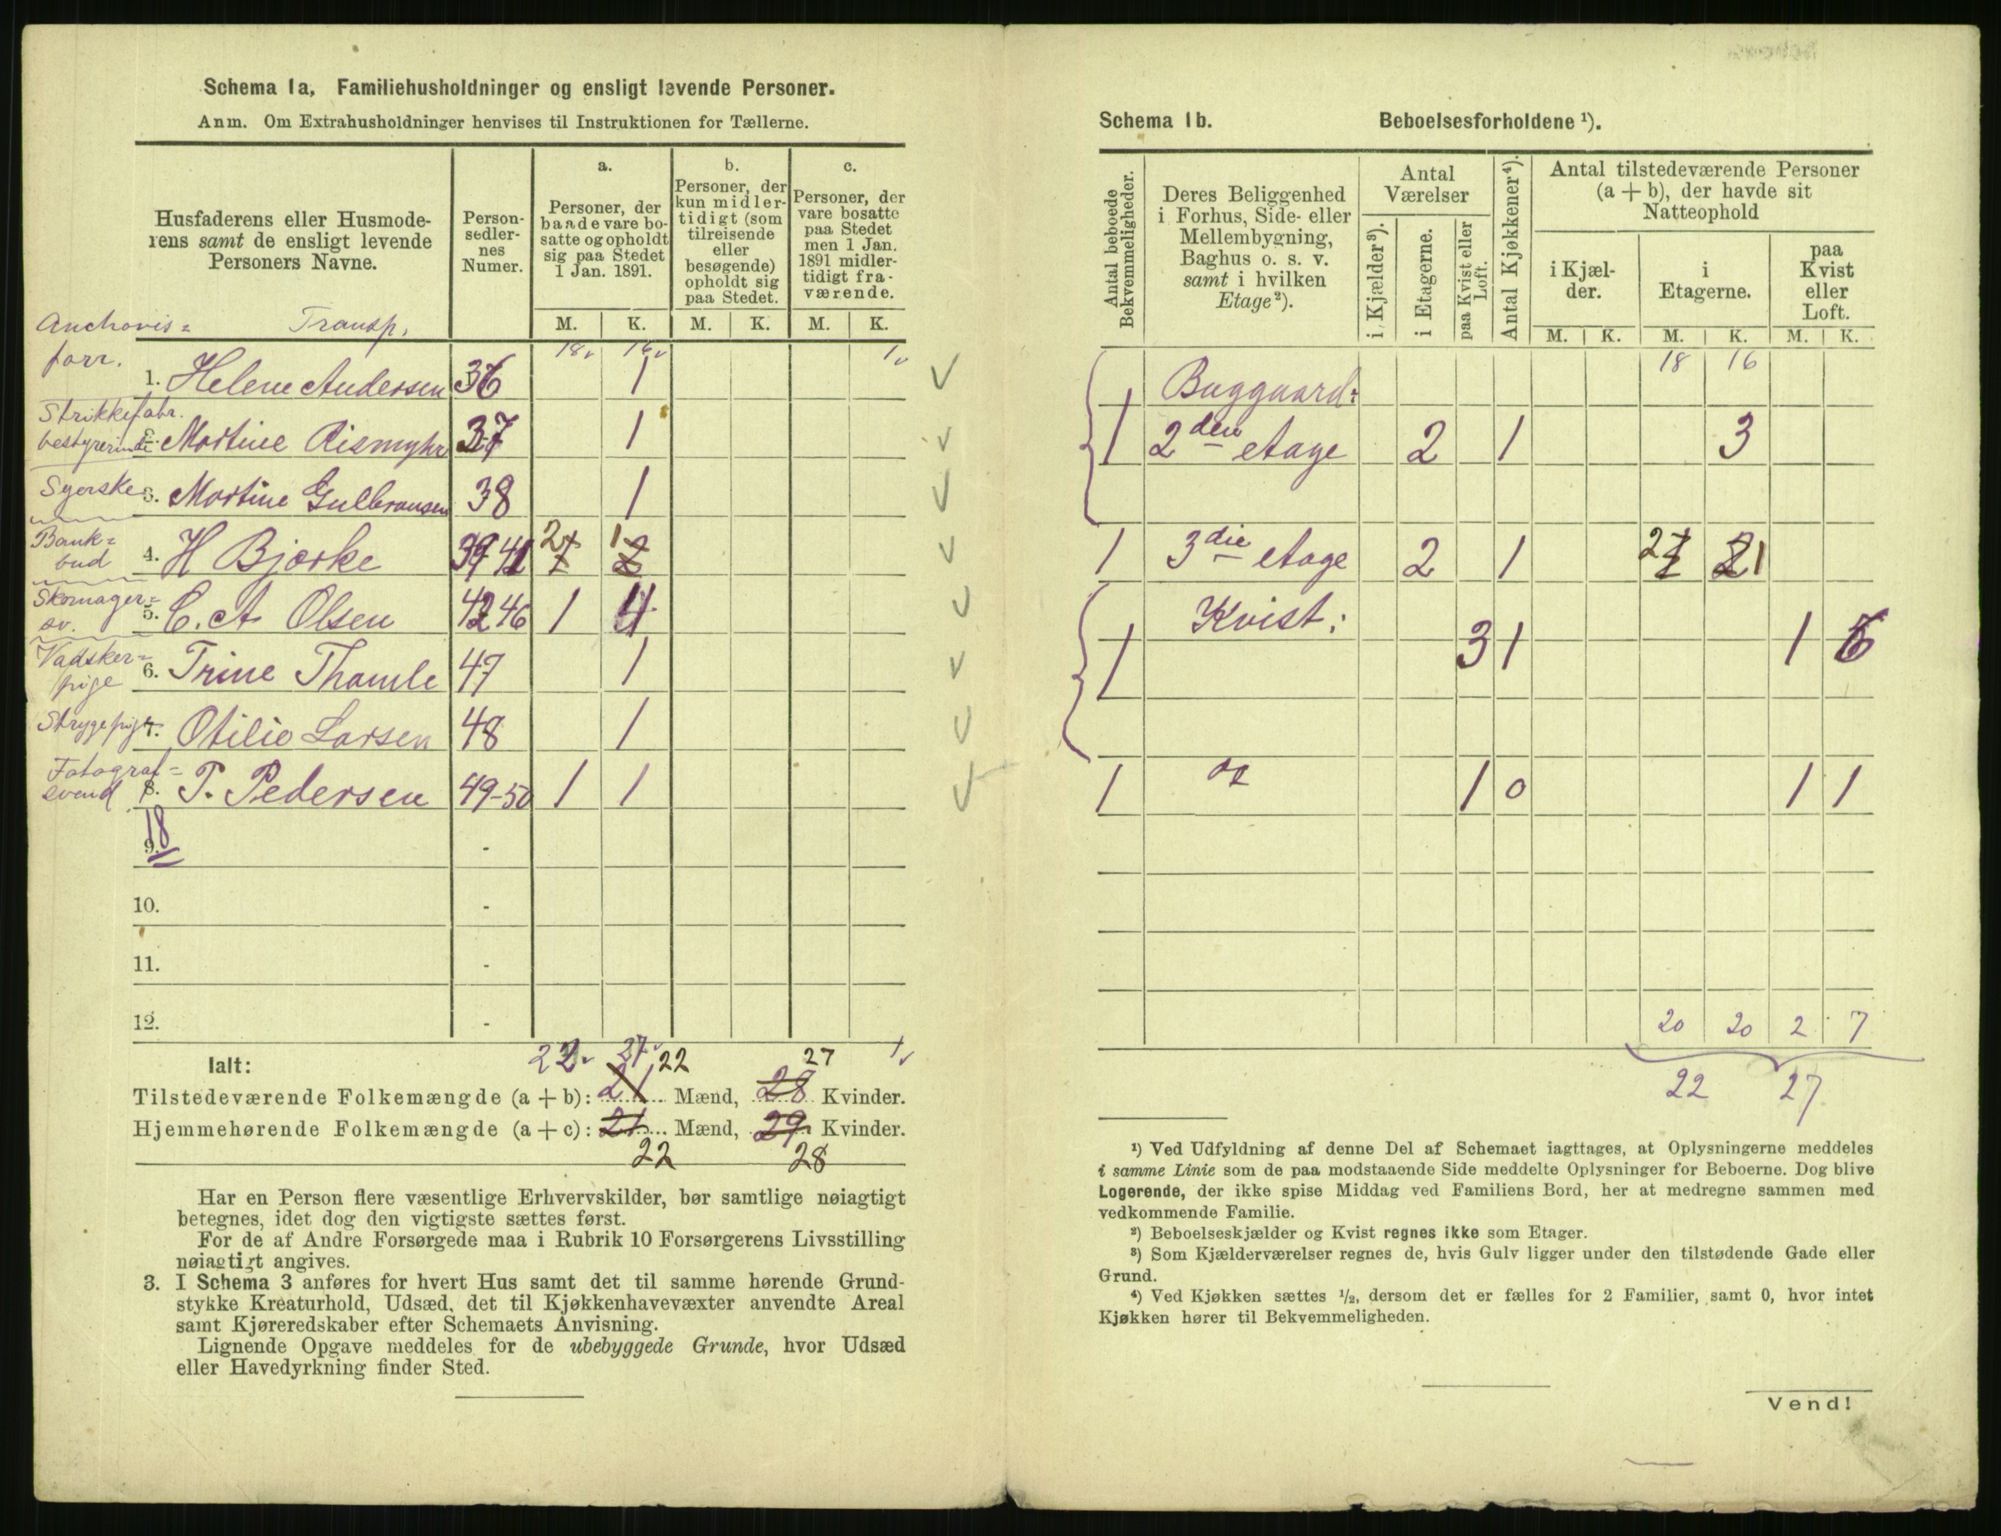 Schema 1a, Familiehusholdninger og ensligt levende Personer.
Anm. Om Extrahusholdninger henvises til Instruktionen for Tællerne.
Husfaderens eller Husmode-
rens samt de ensligt levende
Personers Navne.
Person-
sedler-
nes
Numer.
a.
Personer, der
baade vare bo-
satte og opholdt
sig paa Stedet
1 Jan. 1891.
b.
Personer, der
kun midler-
tidigt (som
tilreisende
eller
besøgende)
opholdt sig
paa Stedet.
c.
Personer, der
vare bosatte
paa Stedet
men 1 Jan.
1891 midler-
tidigt fra-
værende.
M. K. M. K. M. K.
Anchovis= Transp. 18 16 1
forr.
1. Helene Andersen 36 1
Strikkefabr.
bestyrerinde 2. Martine Rismyhr 37 1
Syerske 3. Martine Gulbransen 38 1
Bank=
bud 4. H Bjerke 39 41 2 1
Skomager=
sv. 5. C. A Olsen 42 46 1 4
Vadsker=
pige 6. Trine Thamle 47 1
Strygepige 7. Otilie Larsen 48 1
Fotograf=
svend 8. P. Pedersen 49-50 1 1
18
9. -
10. -
11. -
12. -
Ialt: 22 27 1
22 27
Tilstedeværende Folkemængde (a + b): 21 Mænd, 28 Kvinder.
Hjemmehørende Folkemængde (a + c): 21 Mænd, 29 Kvinder.
22 28
Har en Person flere væsentlige Erhvervskilder, bør samtlige nøiagtigt
betegnes, idet dog den vigtigste sættes først.
For de af Andre Forsørgede maa i Rubrik 10 Forsørgerens Livsstilling
nøiagtigt angives.
3. I Schema 3 anføres for hvert Hus samt det til samme hørende Grund-
stykke Kreaturhold, Udsæd, det til Kjøkkenhavevæxter anvendte Areal
samt Kjøreredskaber efter Schemaets Anvisning.
Lignende Opgave meddeles for de ubebyggede Grunde, hvor Udsæd
eller Havedyrkning finder Sted.
Schema 1b. Beboelsesforholdene ¹).
Antal beboede
Bekvemmeligheder.
Deres Beliggenhed
i Forhus, Side- eller
Mellembygning,
Baghus o. s. v.
samt i hvilken
Etage²).
Antal
Værelser
i Kjælder³).
i Etagerne.
paa Kvist eller
Loft.
Antal Kjøkkener⁴).
Antal tilstedeværende Personer
(a + b), der havde sit
Natteophold
i Kjæl-
der.
i
Etagerne.
paa
Kvist
eller
Loft.
M. K. M. K. M. K.
18 16
Baggaard:
1 2den etage 2 1 3
1 3die etage 2 1 2 1
Kvist:
1 3 1 1 6
1 1 0 1 1
20 20 2 7
22 27
¹) Ved Udfyldning af denne Del af Schemaet iagttages, at Oplysningerne meddeles
i samme Linie som de paa modstaaende Side meddelte Oplysninger for Beboerne. Dog blive
Logerende, der ikke spise Middag ved Familiens Bord, her at medregne sammen med
vedkommende Familie.
²) Beboelseskjælder og Kvist regnes ikke som Etager.
³) Som Kjælderværelser regnes de, hvis Gulv ligger under den tilstødende Gade eller
Grund.
⁴) Ved Kjøkken sættes ½, dersom det er fælles for 2 Familier, samt 0, hvor intet
Kjøkken hører til Bekvemmeligheden.
Vend!